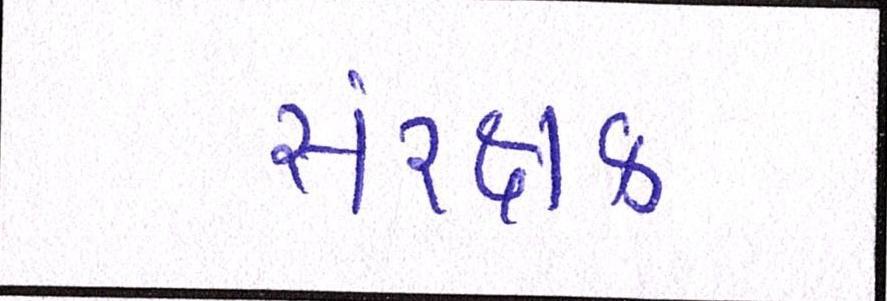 સંરક્ષક